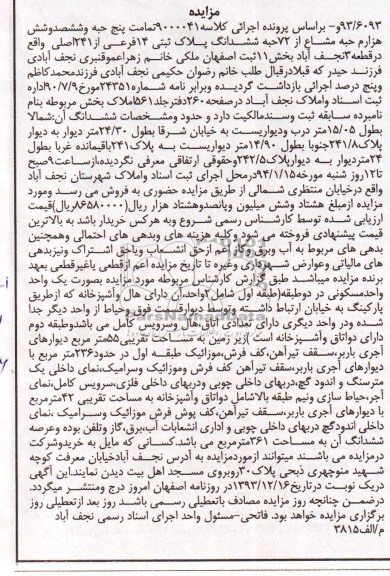 مزایده
۹۳/۶۰۹۳و- براساس پرونده اجرائی کلاسه۹۰۰۰۰۴۱تمامت پنج حبه وششصدوشش
هزارم حبه مشاع از ۷۲حبه ششدانگ پلاک ثبتی ۱۴فرعی از۲۴۱اصلی واقع
درقطعه۳نجف آباد بخش۱۱ثبت اصفهان ملکی خانم زهراعموقنبری نجف آبادی
فرزند حیدر که قبلادرقبال طلب خانم رضوان حکیمی نجف آبادی فرزندمحمدکاظم
وپنج درصد اجرائی بازداشت گردیده وبرابر نامه شماره۲۴۳۵۱مورخ۹۰/۷/۹اداره
ثبت اسناد واملاک نجف آباد درصفحه۲۶۰دفترجلد۵۶۱املاک بخش مربوطه بنام
نامبرده سابقه ثبت وسندمالکیت دارد و حدود ومشخصات ششدانگ آن:شمالا
بطول ۱۵/۰۵متر درب ودیواریست به خیابان شرقا بطول ۲۴/۳۰متر دیوار به دیوار
پلاک۲۴۱/۸جنوبا بطول ۱۴/۹۰متر دیواریست به پلاک۲۴۱باقیمانده غربا بطول
۲۴متردیوار به دیوارپلاک۲۴۲/۵وحقوقی ارتفاقی معرفی نگردیده،ازساعت۹صبح
تا۱۲روز شنبه مورخه۹۴/۱/۱۵درمحل اجرای ثبت اسناد واملاک شهرستان نجف آباد
واقع درخیابان منتظری شمالی از طریق مزایده حضوری به فروش می رسد ومورد
مزایده ازمبلغ هشتاد وشش میلیون وپانصدوهشتاد هزار ریال(۸۶۵۸۰۰۰۰ریال)قیمت
ارزیابی شده توسط کارشناس رسمی شروع وبه هرکس خریدار باشد به بالاترین
قیمت پیشنهادی فروخته می شود وکلیه هزینه های وبدهی های احتمالی وهمچنین
بدهی های مربوط به آب وبرق وگاز اعم ازحق انشعاب ویاحق اشتراک ونیزبدهی
های مالیاتی وعوارض شهرداری وغیره تا تاریخ مزایده اعم ازقطعی یاغیرقطعی بعهد
برنده مزایده میباشد طبق گزارش کارشناس مربوطه مورد مزایده بصورت یک واحد
واحدمسکونی در دوطبقه(طبقه اول شامل۲واحد،آن دارای هال وآشپزخانه که ازطریق
پارکینگ به خیابان ارتباط داشته وتوسط دیوارقسمت فوق وحیاط از واحد دیگر جدا
شده ودر واحد دیگری دارای تعدادی اتاق،هال وسرویس کامل می باشدوطبقه دوم
دارای دواتاق وآشپزخانه است )زیر زمین به مساحت تقریبی۵۵متر مربع دیوارهای
آجری باربر،سقف تیرآهن،کف فرش،موزائیک طبقه اول در حدود۲۳۶متر مربع با
دیوارهای آجری باربر،سقف تیرآهن کف فرش وموزائیک وسرامیک،نمای داخلی یک
مترسنگ و اندود گچ،دربهای داخلی چوبی ودربهای داخلی فلزی،سرویس کامل،نمای
آجر،حیاط سازی ونیم طبقه بالاشامل دواتاق وآشپزخانه به مساحت تقریبی ۴۲مترمربع
با دیوارهای آجری باربر،سقف تیرآهن،کف پوش فرش موزائیک وسرامیک ،نمای
داخلی اندودگچ دربهای داخلی چوبی و اداری انشعابات آب،برق،گاز وتلفن بوده وعرصه
ششدانگ آن به مساحت ۳۶۱مترمربع می باشد.کسانی که مایل به خریدوشرکت
درمزایده می باشند میتوانند ازموردمزایده به آدرس نجف آبادخیابان معرفت کوچه
شهید منوچهری ذبحی پلاک۳۰روبروی مسجد اهل بیت دیدن نمایند.این آگهی
دریک نوبت درتاریخ۱۳۹۳/۱۲/۱۶در روزنامه اصفهان امروز درج ومنتشر میگردد.
درضمن چنانچه روز مزایده مصادف باتعطیلی رسمی باشد روز بعد ازتعطیلی روز
برگزاری مزایده خواهد بود. فاتحی-مسئول واحد اجرای اسناد رسمی نجف آباد
م/الف۳۸۱۵